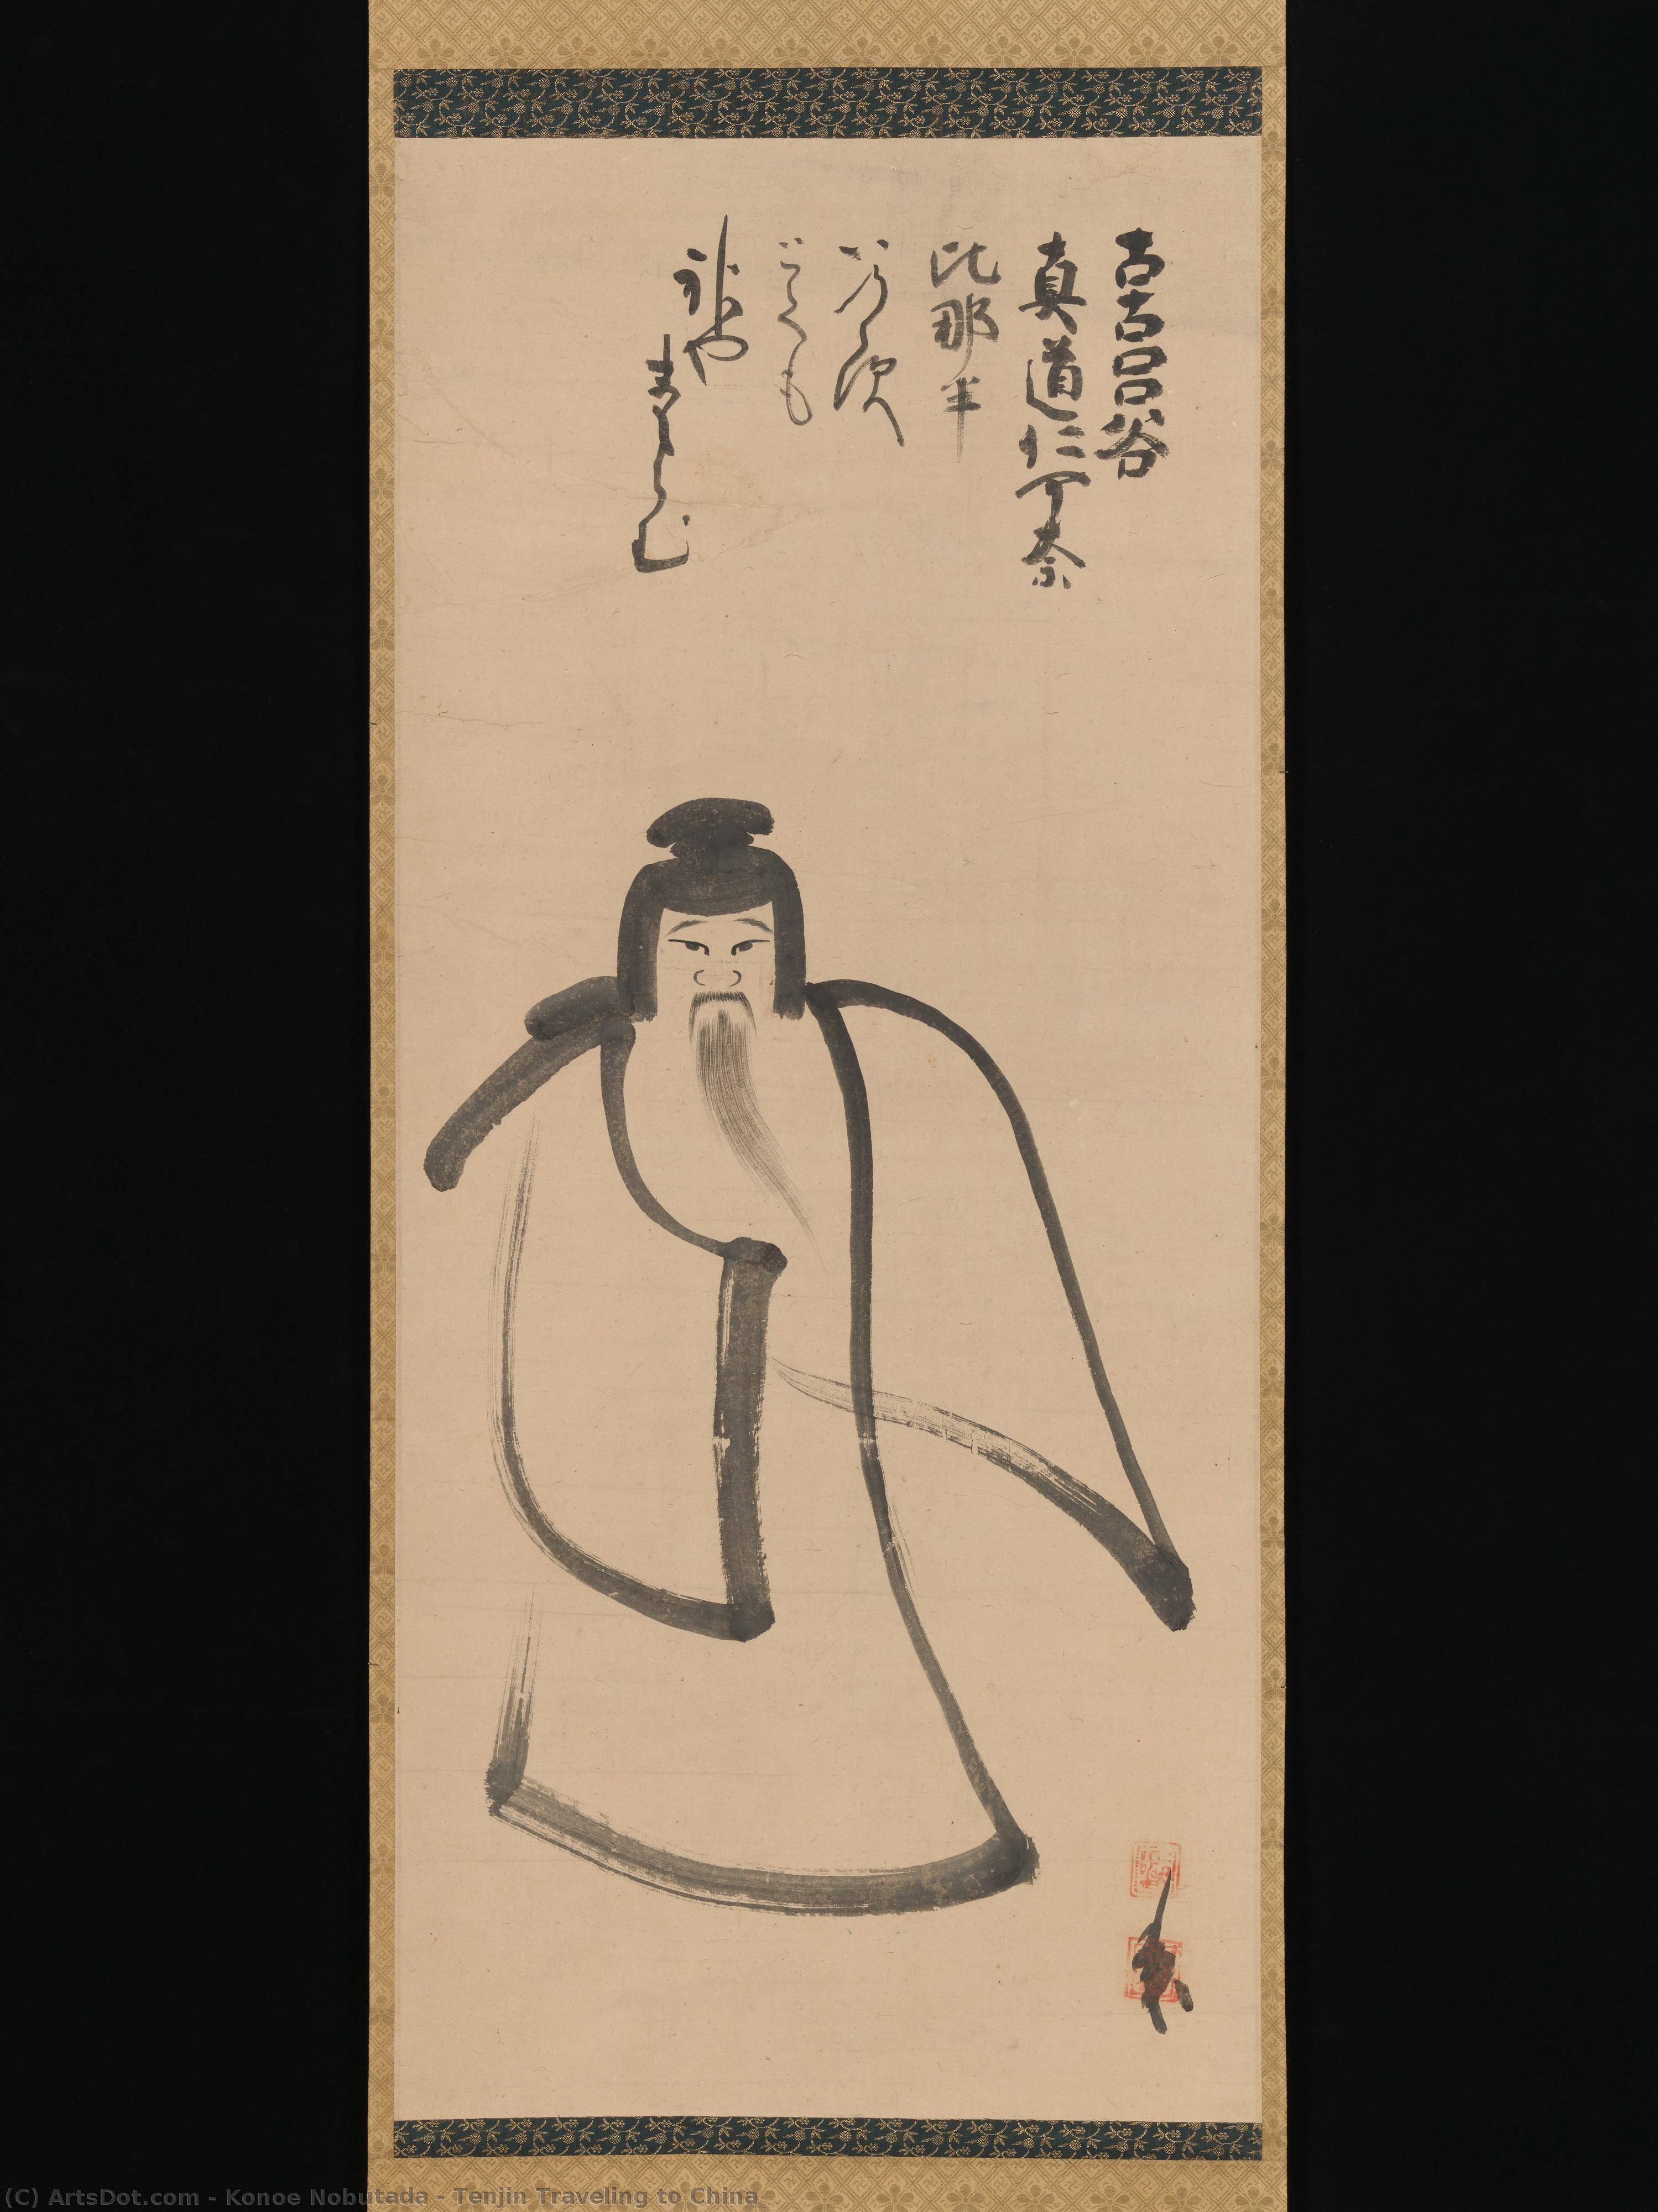 古古呂谷
真道仁可奈
比那半
いのら須
とても
神や
まもらむ
(C) ArtsDot.com - Konoe Nobutada - Tenjin Traveling to China